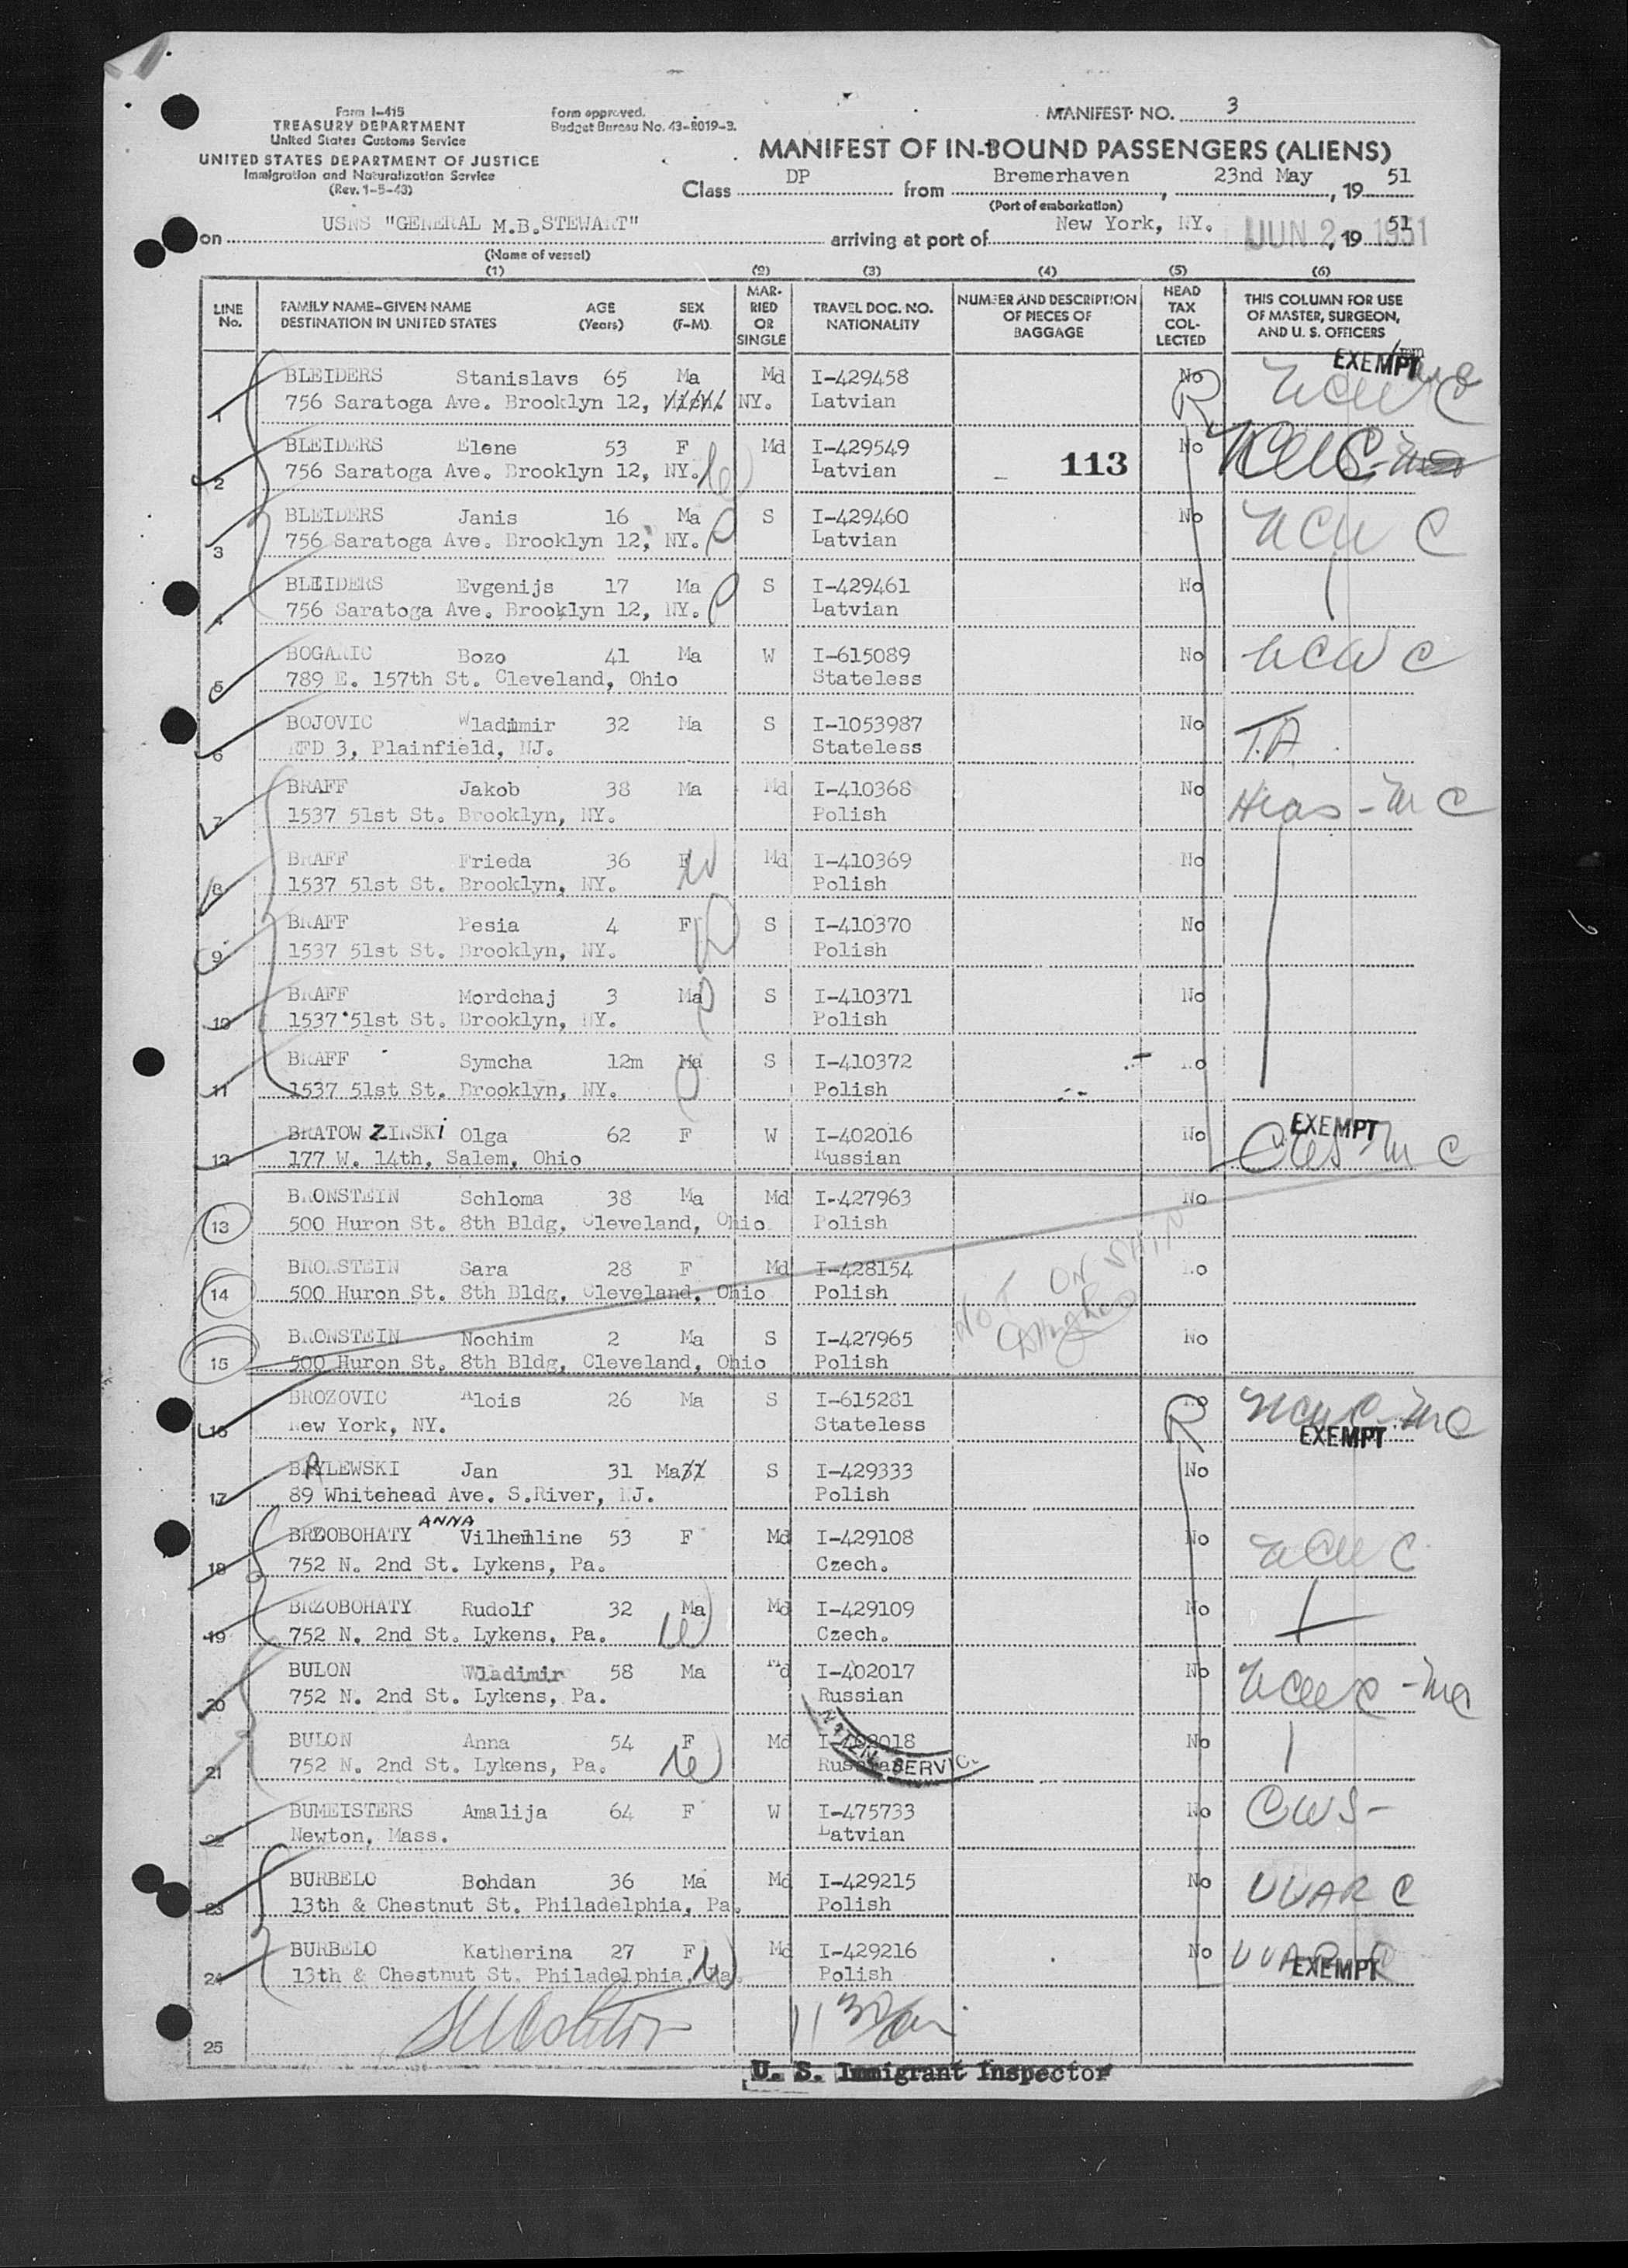 Form I-415
TREASURY DEPARTMENT
United States Customs Service
UNITED STATES DEPARTMENT OF JUSTICE
Immigration and Naturalization Service
(Rev. 1-5-43)
Form approved.
Budget Bureau No. 43-R019-3.
MANIFEST NO. 3
MANIFEST OF IN-BOUND PASSENGERS (ALIENS)
Class DP from Bremerhaven, 23nd May, 19 51
(Port of embarkation)
on USNS "GENERAL M.B.STEWART" arriving at port of New York, NY. JUN 2 1951, 19 51
(Name of vessel)
(1) (2) (3) (4) (5) (6)
LINE No. FAMILY NAME—GIVEN NAME DESTINATION IN UNITED STATES AGE (Years) SEX (F-M) MARRIED OR SINGLE TRAVEL DOC. NO. NATIONALITY NUMBER AND DESCRIPTION OF PIECES OF BAGGAGE HEAD TAX COLLECTED THIS COLUMN FOR USE OF MASTER, SURGEON, AND U. S. OFFICERS
1 BLEIDERS Stanislavs 65 Ma Md I-429458 No EXEMPT
756 Saratoga Ave. Brooklyn 12, NY. Latvian R
2 BLEIDERS Elene 53 F Md I-429549 No
756 Saratoga Ave. Brooklyn 12, NY. Latvian 113
3 BLEIDERS Janis 16 Ma S I-429460 No
756 Saratoga Ave. Brooklyn 12, NY. Latvian
4 BLEIDERS Evgenijs 17 Ma S I-429461 No
756 Saratoga Ave. Brooklyn 12, NY. Latvian
5 BOGARIC Bozo 41 Ma W I-615089 No
789 E. 157th St. Cleveland, Ohio Stateless
6 BOJOVIC Wladimir 32 Ma S I-1053987 No T.A.
RFD 3, Plainfield, NJ. Stateless
7 BRAFF Jakob 38 Ma Md I-410368 No Hias-
1537 51st St. Brooklyn, NY. Polish
8 BRAFF Frieda 36 F Md I-410369 No
1537 51st St. Brooklyn, NY. Polish
9 BRAFF Pesia 4 F S I-410370 No
1537 51st St. Brooklyn, NY. Polish
10 BRAFF Mordchaj 3 Ma S I-410371 No
1537 51st St. Brooklyn, NY. Polish
11 BRAFF Symcha 12m Ma S I-410372 No
1537 51st St. Brooklyn, NY. Polish
12 BRATOWZINSKi Olga 62 F W I-402016 No EXEMPT
177 W. 14th, Salem, Ohio Russian
13 BRONSTEIN Schloma 38 Ma Md I-427963 No
500 Huron St. 8th Bldg, Cleveland, Ohio Polish
14 BRONSTEIN Sara 28 F Md I-428154 No
500 Huron St. 8th Bldg, Cleveland, Ohio Polish
NOT ON SHIP
15 BRONSTEIN Nochim 2 Ma S I-427965 No
500 Huron St. 8th Bldg, Cleveland, Ohio Polish
16 BROZOVIC Alois 26 Ma S I-615281 No
New York, NY. Stateless R EXEMPT
17 BRYLEWSKI Jan 31 Ma S I-429333 No
89 Whitehead Ave. S.River, NJ. Polish
ANNA
18 BRZOBOHATY Vilhemline 53 F Md I-429108 No
752 N. 2nd St. Lykens, Pa. Czech.
19 BRZOBOHATY Rudolf 32 Ma Md I-429109 No
752 N. 2nd St. Lykens, Pa. Czech.
20 BULON Wladimir 58 Ma Md I-402017 No
752 N. 2nd St. Lykens, Pa. Russian
21 BULON Anna 54 F Md I-402018 No
752 N. 2nd St. Lykens, Pa. Russian SERVICE
22 BUMEISTERS Amalija 64 F W I-475733 No CWS-
Newton, Mass. Latvian
23 BURBELO Bohdan 36 Ma Md I-429215 No UUAR C
13th & Chestnut St. Philadelphia, Pa. Polish
24 BURBELO Katherina 27 F Md I-429216 No EXEMPT
13th & Chestnut St. Philadelphia, Pa. Polish
25
U. S. Immigrant Inspector